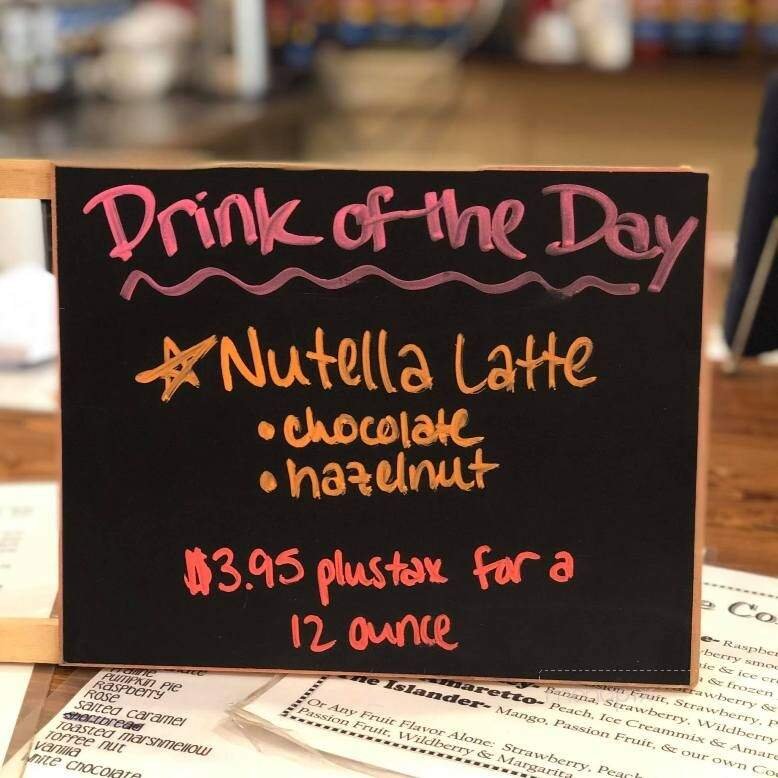 Drink of the Day
Nutella Latte
• chocolate
• hazelnut
$3.95 plus tax for a
12 ounce
Pumpkin Pie
Raspberry
Rose
Salted Caramel
Shortbread
Toasted Marshmellow
Toffee Nut
Vanilla
White Chocolate
Amaretto- Peach, Ice Creammix & Amar
The Islander- Mango, Passion Fruit, & our own Co
Or Any Fruit Flavor Alone: Strawberry, Peach
Passion Fruit, Wildberry & Margarita
Banana, Strawberry, Wildberry
Fruit, Strawberry &
& frozen
Raspbe